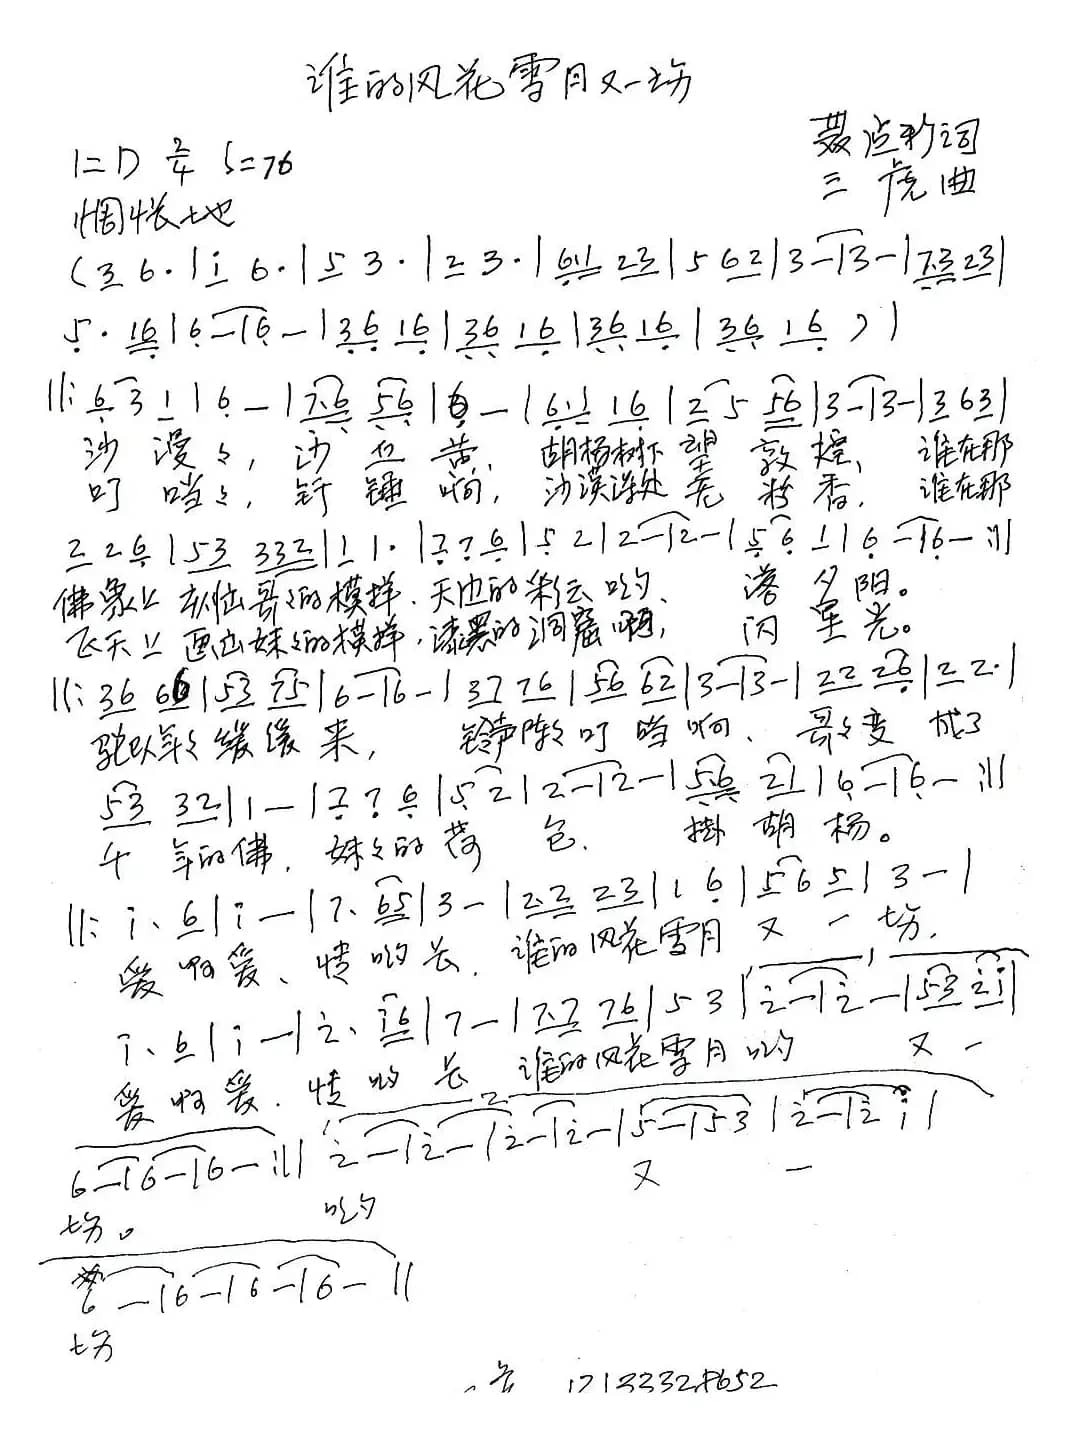 谁的风花雪月又一场
1=D 2/4 ♩=76
聂 彩词
三虎曲
惆怅地
(3 6·|i 6·|5 3·|2 3·|61 23|5 62|3-|3-|73 23|
5· 16|6-|6-|36 16|36 16|36 16|36 16)|
||:6 3 1|6-|76 56|6-|61 16|2 5 56|3-|3-|3 63|
沙漫々,沙 苦,胡杨树下望敦煌、谁在那
叮当々,钎锤响,沙漠深处无粉香,谁在那
2 2 6|53 332|1 1·|7 7 6|5 2|2-|2-|5 6 1|6-|6-:||
佛象上刻出哥々的模样.天边的彩云哟、落夕阳。
飞天上画出妹々的模样,漆黑的洞窟啊,闪星光。
||:36 66|53 75|6-|6-|37 76|56 62|3-|3-|22 26|22·|
驼队年々缓缓来,铃声阵々叮当响、哥々变成了
53 32|1-|7 7 6|5 2|2-|2-|56 21|6-|6-:||
千年的佛,妹々的荷包、掛胡杨。
||:i· 6|i-|7· 65|3-|22 23|1 6|56 5|3-|
爱啊爱、情哟长,谁的风花雪月又一场,
i· 6|i-|2· i6|7-|77 76|5 3|2-|2-|53 2i|
爱啊爱.情哟长 谁的风花雪月哟 又一
6-|6-|6-:|| 2-|2-|2-|2-|5-|53|2-|2 i|
场。 哟 又 一
6-|6-|6-|6-||
场